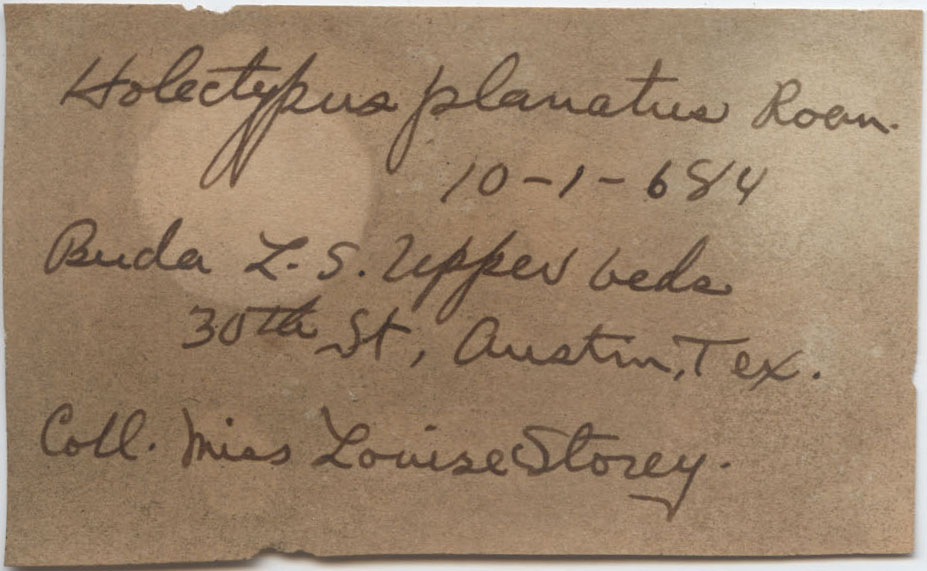 Holectypus planatus Roem.
10-1-684
Buda L.S. Upper beds
30th St, Austin, Tex.
Coll. Miss Louise Storey.